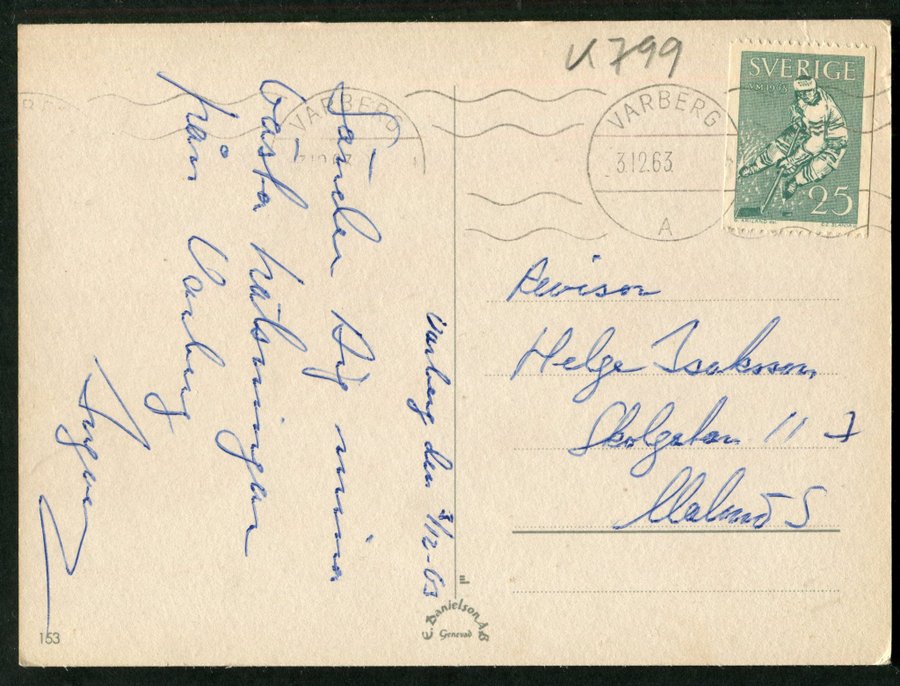 K 799
VARBERG
3.12.63
A
VARBERG
3.12.63
SVERIGE
VM 1963
25
Varberg den 3/12-63
Sänder Dig mina
bästa hälsningar
från Varberg
Ingvar
Revisor
Helge Isaksson
Skolgatan 11 I
Malmö S
E. Danielson AB
Genevad
153